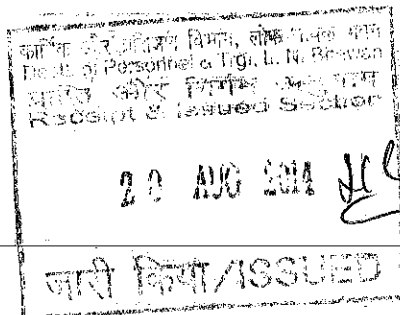 कार्मिक और प्रशिक्षण विभाग, लोक नायक भवन
Deptt. of Personnel & Trg., L. N. Bhawan
प्राप्ति और निर्गम अनुभाग
Receipt & Issued Section
20 AUG 2014
जारी किया/ISSUED